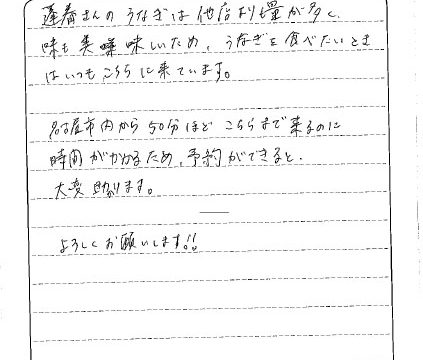 さんのうなぎは他店より量が多く、
味も美味しいため、うなぎを食べたいとき
はいつもこちらに来ています。
名古屋市内から50分ほどこちらまで来るのに
時間がかかるため、予約ができると、
大変助かります。
よろしくお願いします!!